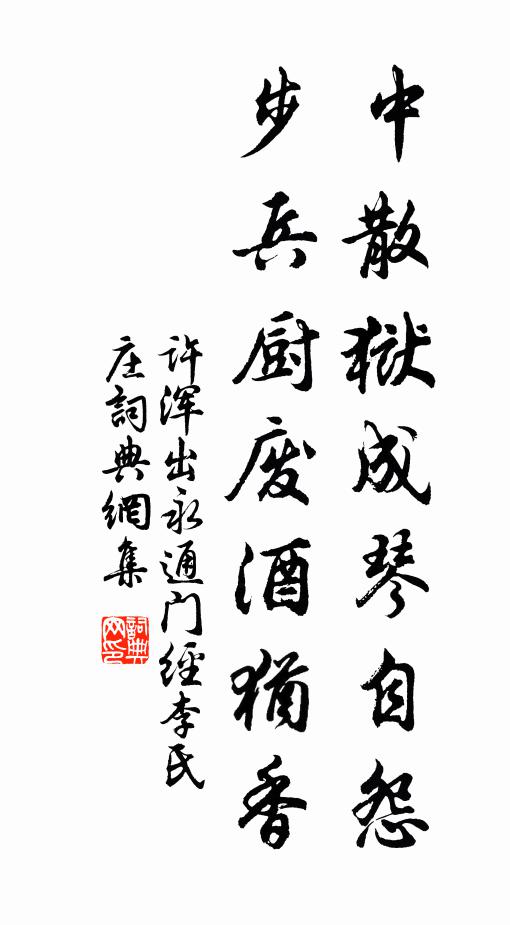 中散獄成琴自怨
步兵厨废酒猶香
许浑出永通门經李氏
庄詞典網集
詞典网印